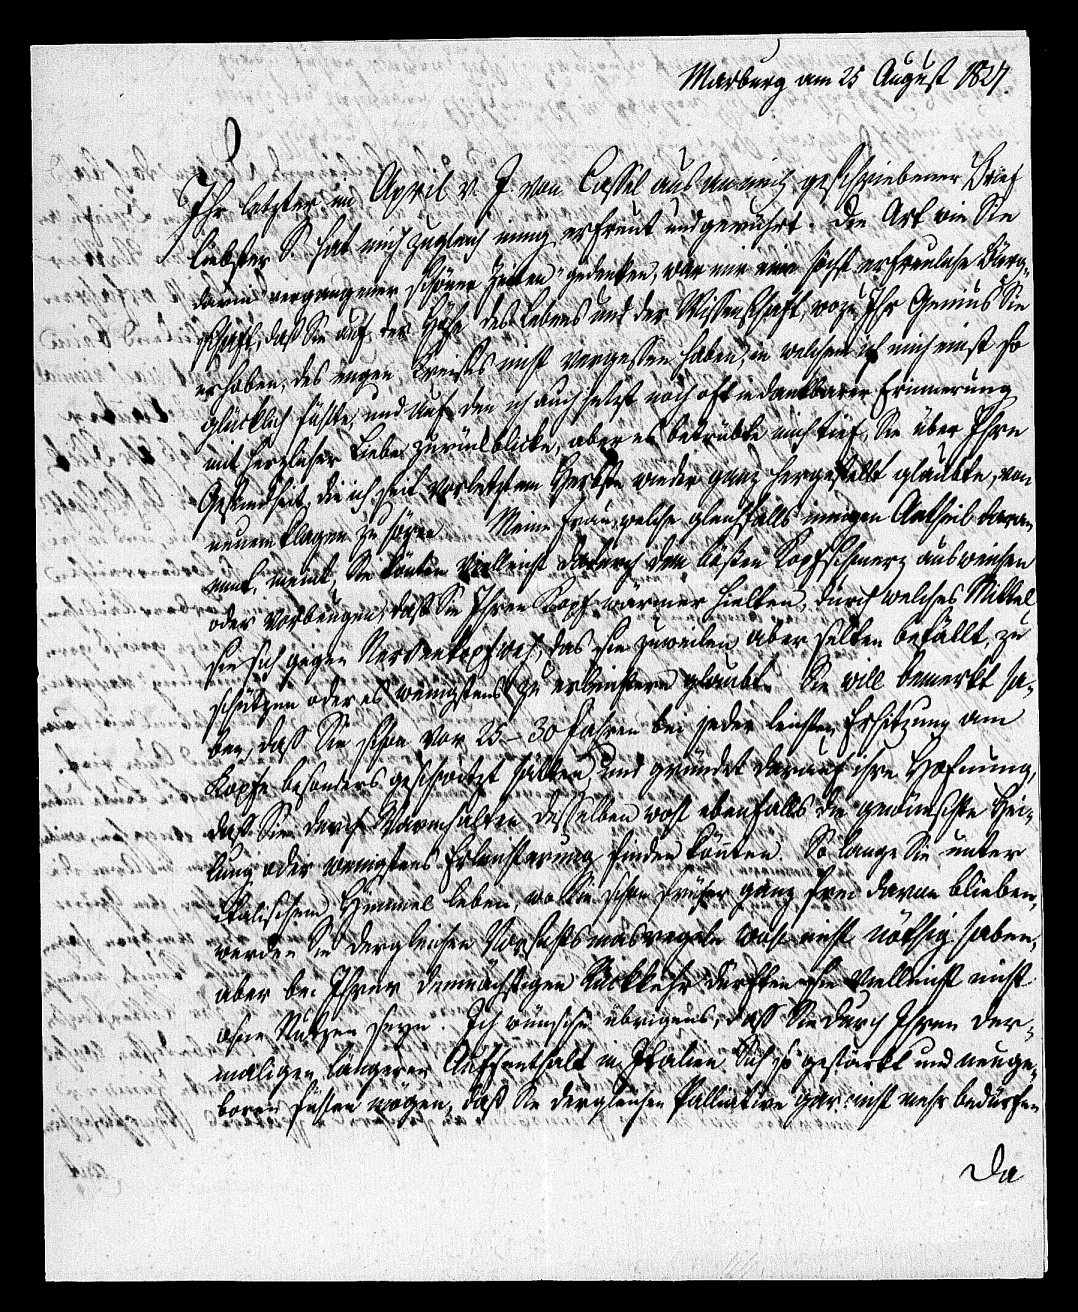 Marburg am 25 August 1827.
Ihr letzter im April v. J. von Cassel aus an mich geschriebener Brief
liebster S. hat mich zugleich innig erfreut und gerührt. Die Art wie Sie
darin vergangener schöner Zeiten gedenken, war mir eine höchst erfreuliche Bürg-
schaft, daß Sie auf der Höhe des Lebens und der Wissenschaft, wozu Ihr Genius Sie
erhoben, des engen Kreises nicht vergessen haben, in welchem ich mich einst so
glücklich fühlte, und auf den ich auch jetzt noch oft in dankbarer Erinnerung
mit herzlicher Liebe zurückblicke, aber es betrübte mich tief, Sie über Ihre
Gesundheit, die ich seit vorletztem Herbste wieder ganz hergestellt glaubte, von
neuem klagen zu hören. Meine Frau, welche gleichfalls innigen Antheil daran
nimt, meint, Sie könten vielleicht dadurch dem bösen Kopfschmerz ausweichen
oder vorbeugen, daß Sie Ihren Kopf wärmer hielten, durch welches Mittel
sie sich gegen Nervenkopfweh, das sie zuweilen aber selten befällt, zu
schützen oder es wenigstens zu erleichtern glaubt. Sie will bemerkt ha-
ben, daß Sie schon vor 25-30 Jahren bei jeder leichten Erhitzung am
Kopfe besonders geschwitzt hätten, und gründet darauf ihre Hofnung,
daß Sie durch Warmhalten desselben wohl ebenfalls die gewünschte Hei-
lung oder wenigstens Erleichterung finden könten. So lange Sie unter
Italischem Himmel leben, wo Sie schon früher ganz frei davon blieben,
werden Sie dergleichen Vorsichtsmasregeln wohl nicht nöthig haben,
aber bei Ihrer demnächstigen Rückkehr dürften sie vielleicht nicht
ohne Nutzen seyn. Ich wünsche übrigens, daß Sie durch Ihren der-
maligen längeren Auffenthalt in Italien Sich so gestärkt und neuge-
boren fühlen mögen, daß Sie dergleichen Palliative gar nicht mehr bedürfen
Da